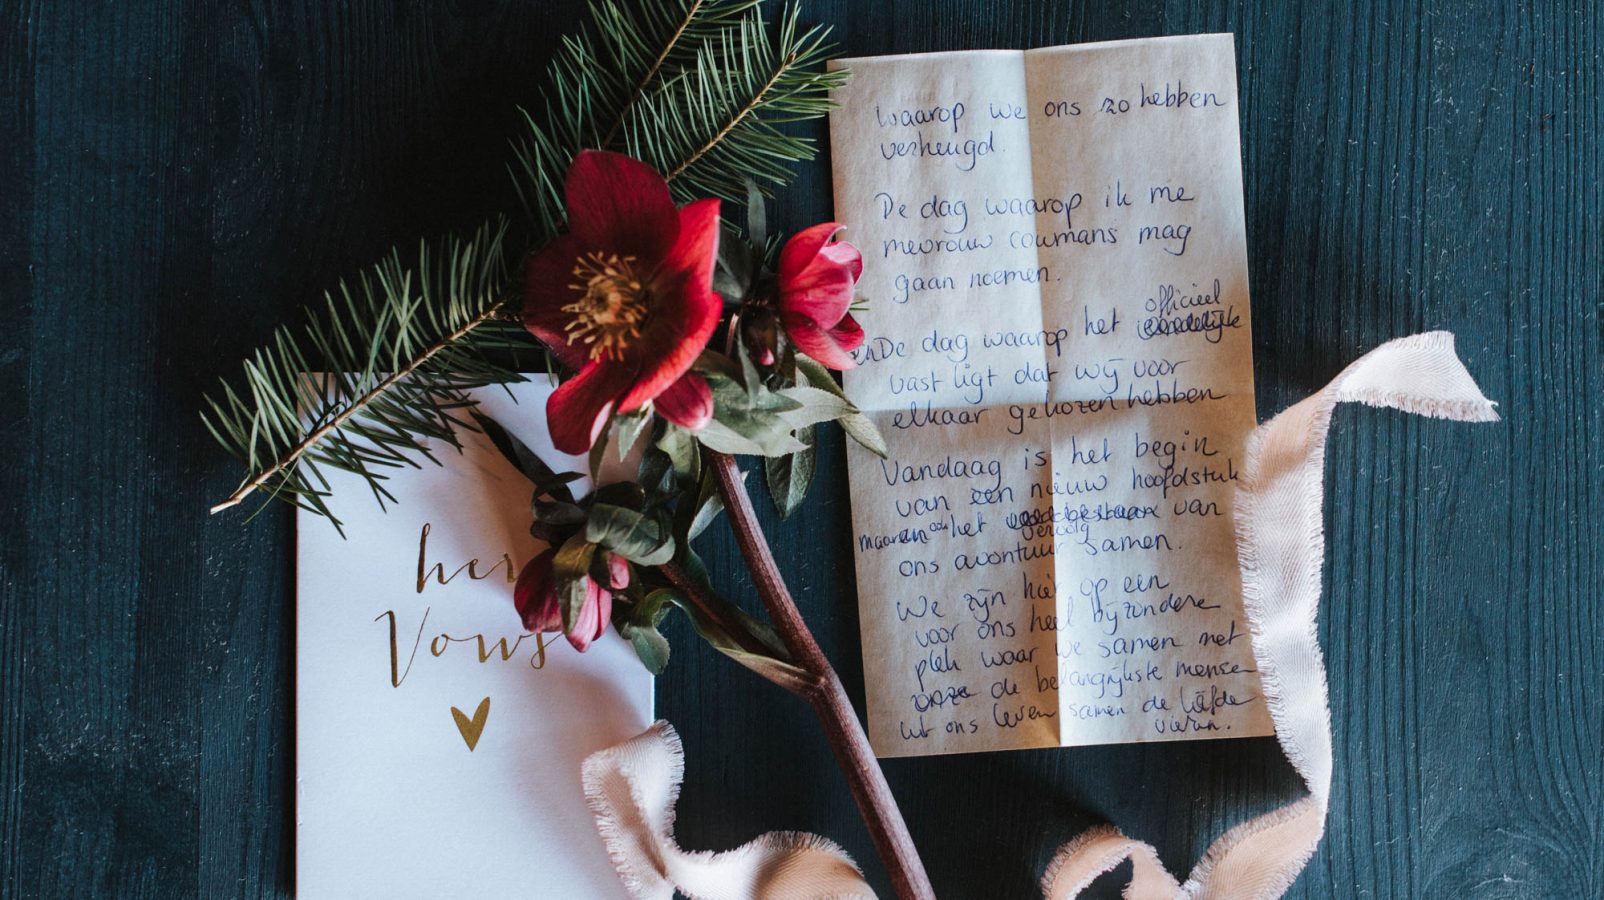 her
Vows
waarop we ons zo hebben
verheugd.
De dag waarop ik me
mevrouw coumans mag
gaan noemen.
officieel
en De dag waarop het
vast ligt dat wij voor
elkaar gekozen hebben
Vandaag is het begin
van een nieuw hoofdstuk
maar en ook het van
vervolg
ons avontuur samen.
We zijn hier op een
voor ons heel bijzondere
plek waar we samen met
onze de belangrijkste mensen
uit ons leven samen de liefde
vieren.